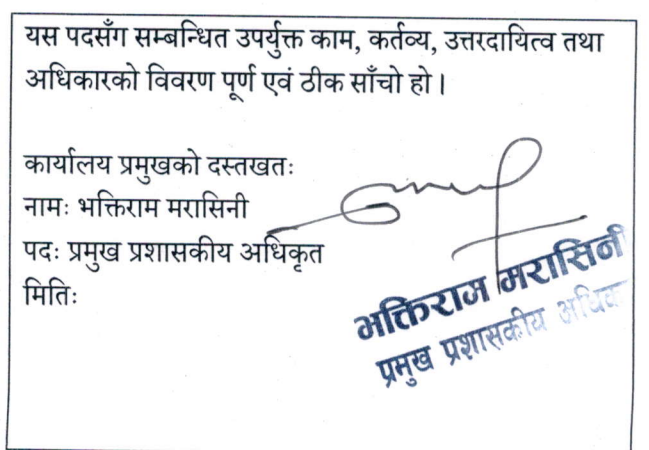 यस पदसँग सम्बन्धित उपर्युक्त काम, कर्तव्य, उत्तरदायित्व तथा
अधिकारको विवरण पूर्ण एवं ठीक साँचो हो।
कार्यालय प्रमुखको दस्तखतः
नामः भक्तिराम मरासिनी
पदः प्रमुख प्रशासकीय अधिकृत
मितिः
भक्तिराम मरासिनी
प्रमुख प्रशासकीय